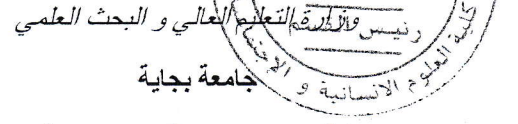 وزارة التعليم العالي و البحث العلمي
جامعة بجاية
رئيس القسم
كلية العلوم الانسانية و الاجتما